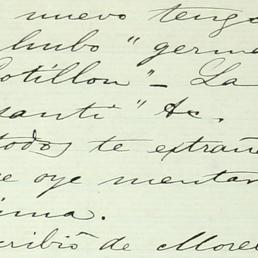 nuevo tengo
hubo "germa
Cotillon" - La
santi" &c.
todos te extrañ
se oye mentar
ima.
cribió de More